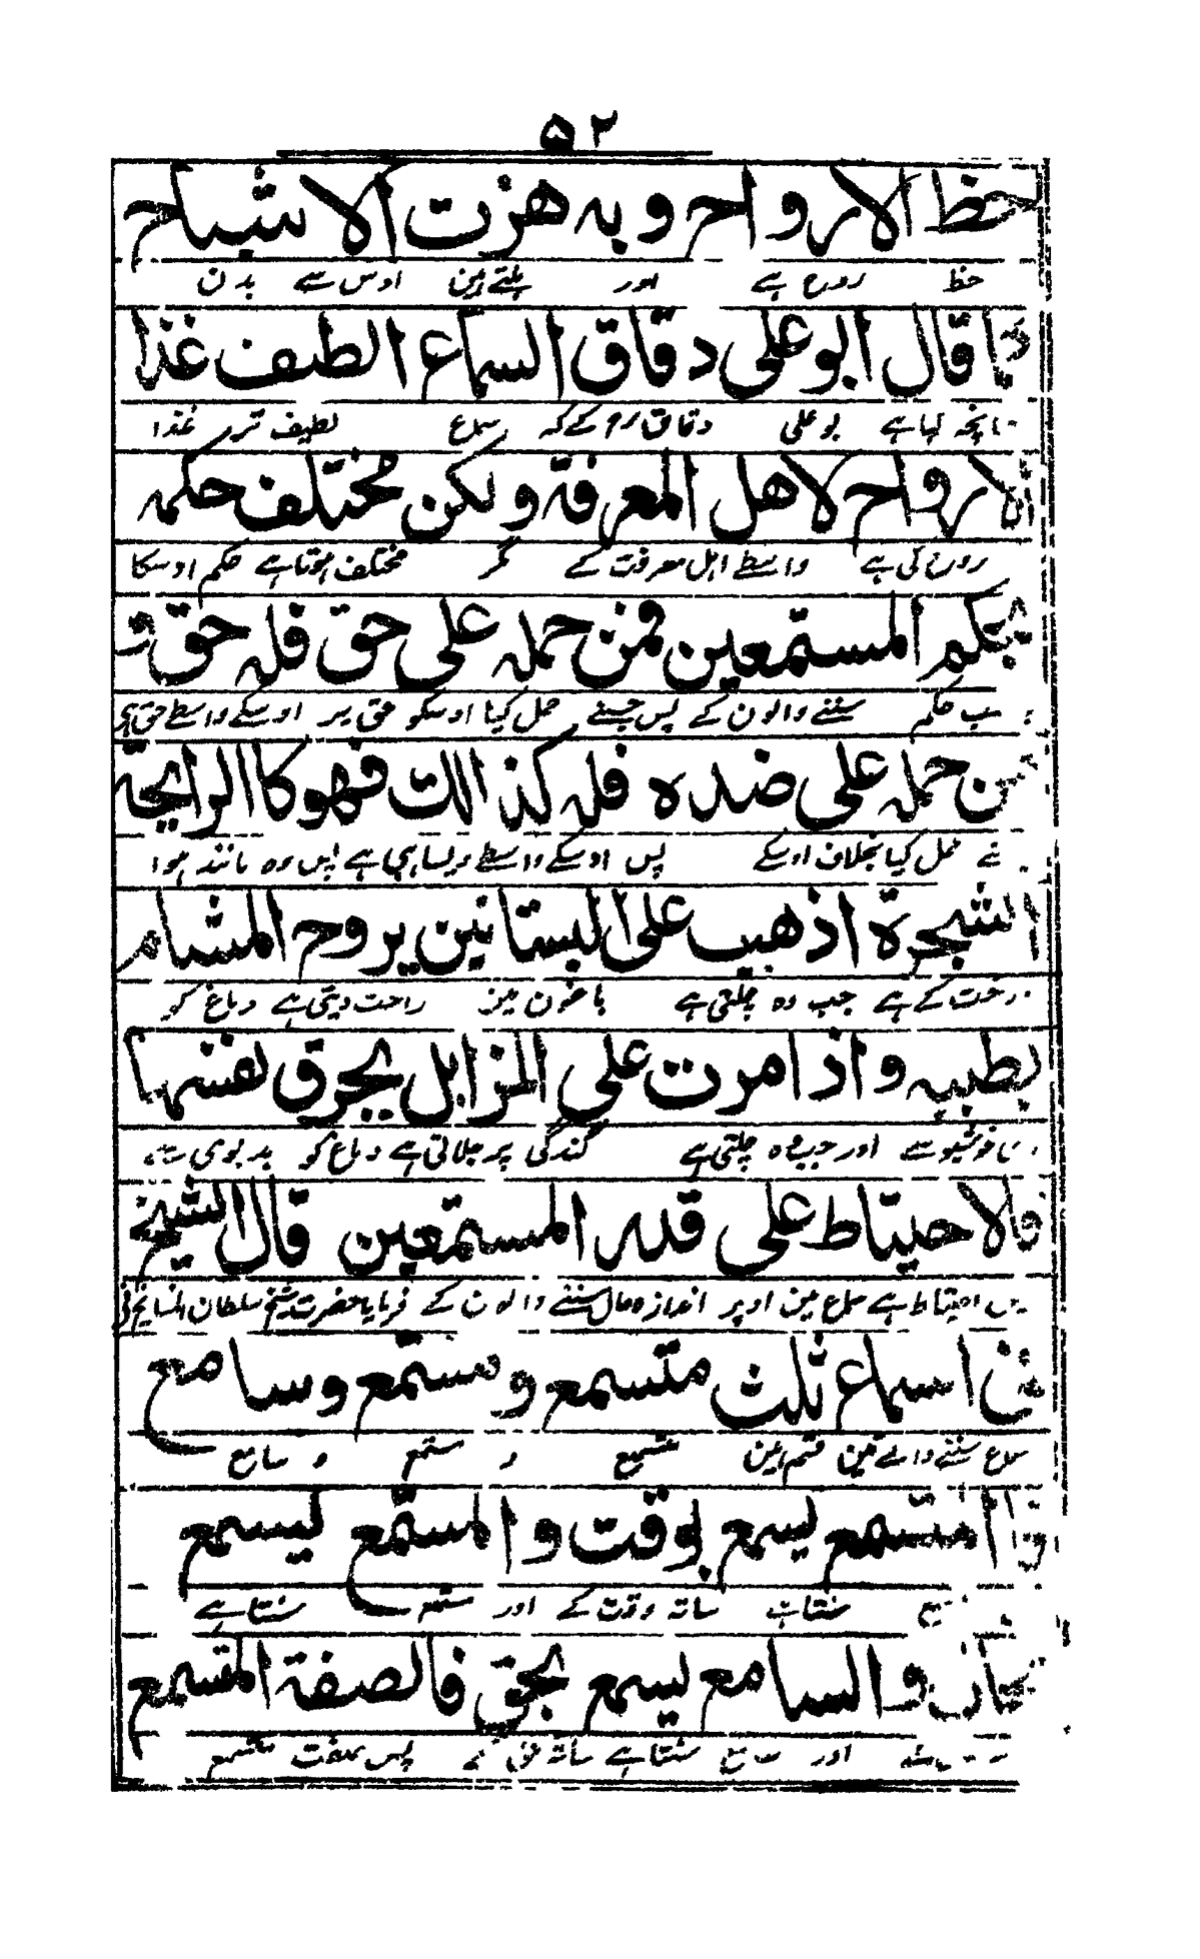 ۵۲
حظ الارواح وبہ ھزت الاشباح
حظ روح ہے اور ہلتے ہین اوس سے بدن
قال ابو علی دقاق السماع الطیف غذا
بو علی دقاق نے کہ سماع لطیف تر غذا
الارواح لاھل المعرفۃ ولکن مختلف حکمہ
روح کی ہے واسطے اہل معرفت کے مگر مختلف ہوتا ہے حکم اوسکا
بحکم المستمعین فمن حملہ علی حق فلہ حق و
حکم سننے والون کے پس جسنے حمل کیا اوسکو حق پر اوسکے واسطے حق ہی
من حملہ علی ضدہ فلہ کذالک فھو کاالرایحۃ
نے حمل کیا بخلاف اوسکے پس اوسکے واسطے ویساہی ہے پس وہ مانند ہوا
الشجرۃ اذھب علی البستانین یروح المشام
درخت کے ہے جب وہ چلتی ہے باغون مین راحت دیتی ہے دماغ کو
بطیبہ واذا مرت علی المزابل یحرق نفسہا
خوشبو سے اور جب وہ چلتی ہے گندگی پر جلاتی ہے دماغ کو بدبوی سے
فالاحیتاط علی قدر المستمعین قال الشیخ
احتیاط ہے سماع مین اوپر اندازہ حال سننے والون کے فرمایا حضرت شیخ سلطان المشایخ نے
اسماع ثلث متسمع و مستمع وسامع
سماع سننے والے تین قسم ہین متسمع و مستمع و سامع
المتسمع یسمع بوقت و المستمع یسمع
سنتا ہے ساتہ وقت کے اور مستمع سنتا ہے
والسامع یسمع بحق فالصفۃ المتسمع
اور سامع سنتا ہے ساتہ حق کے پس صفت متسمع